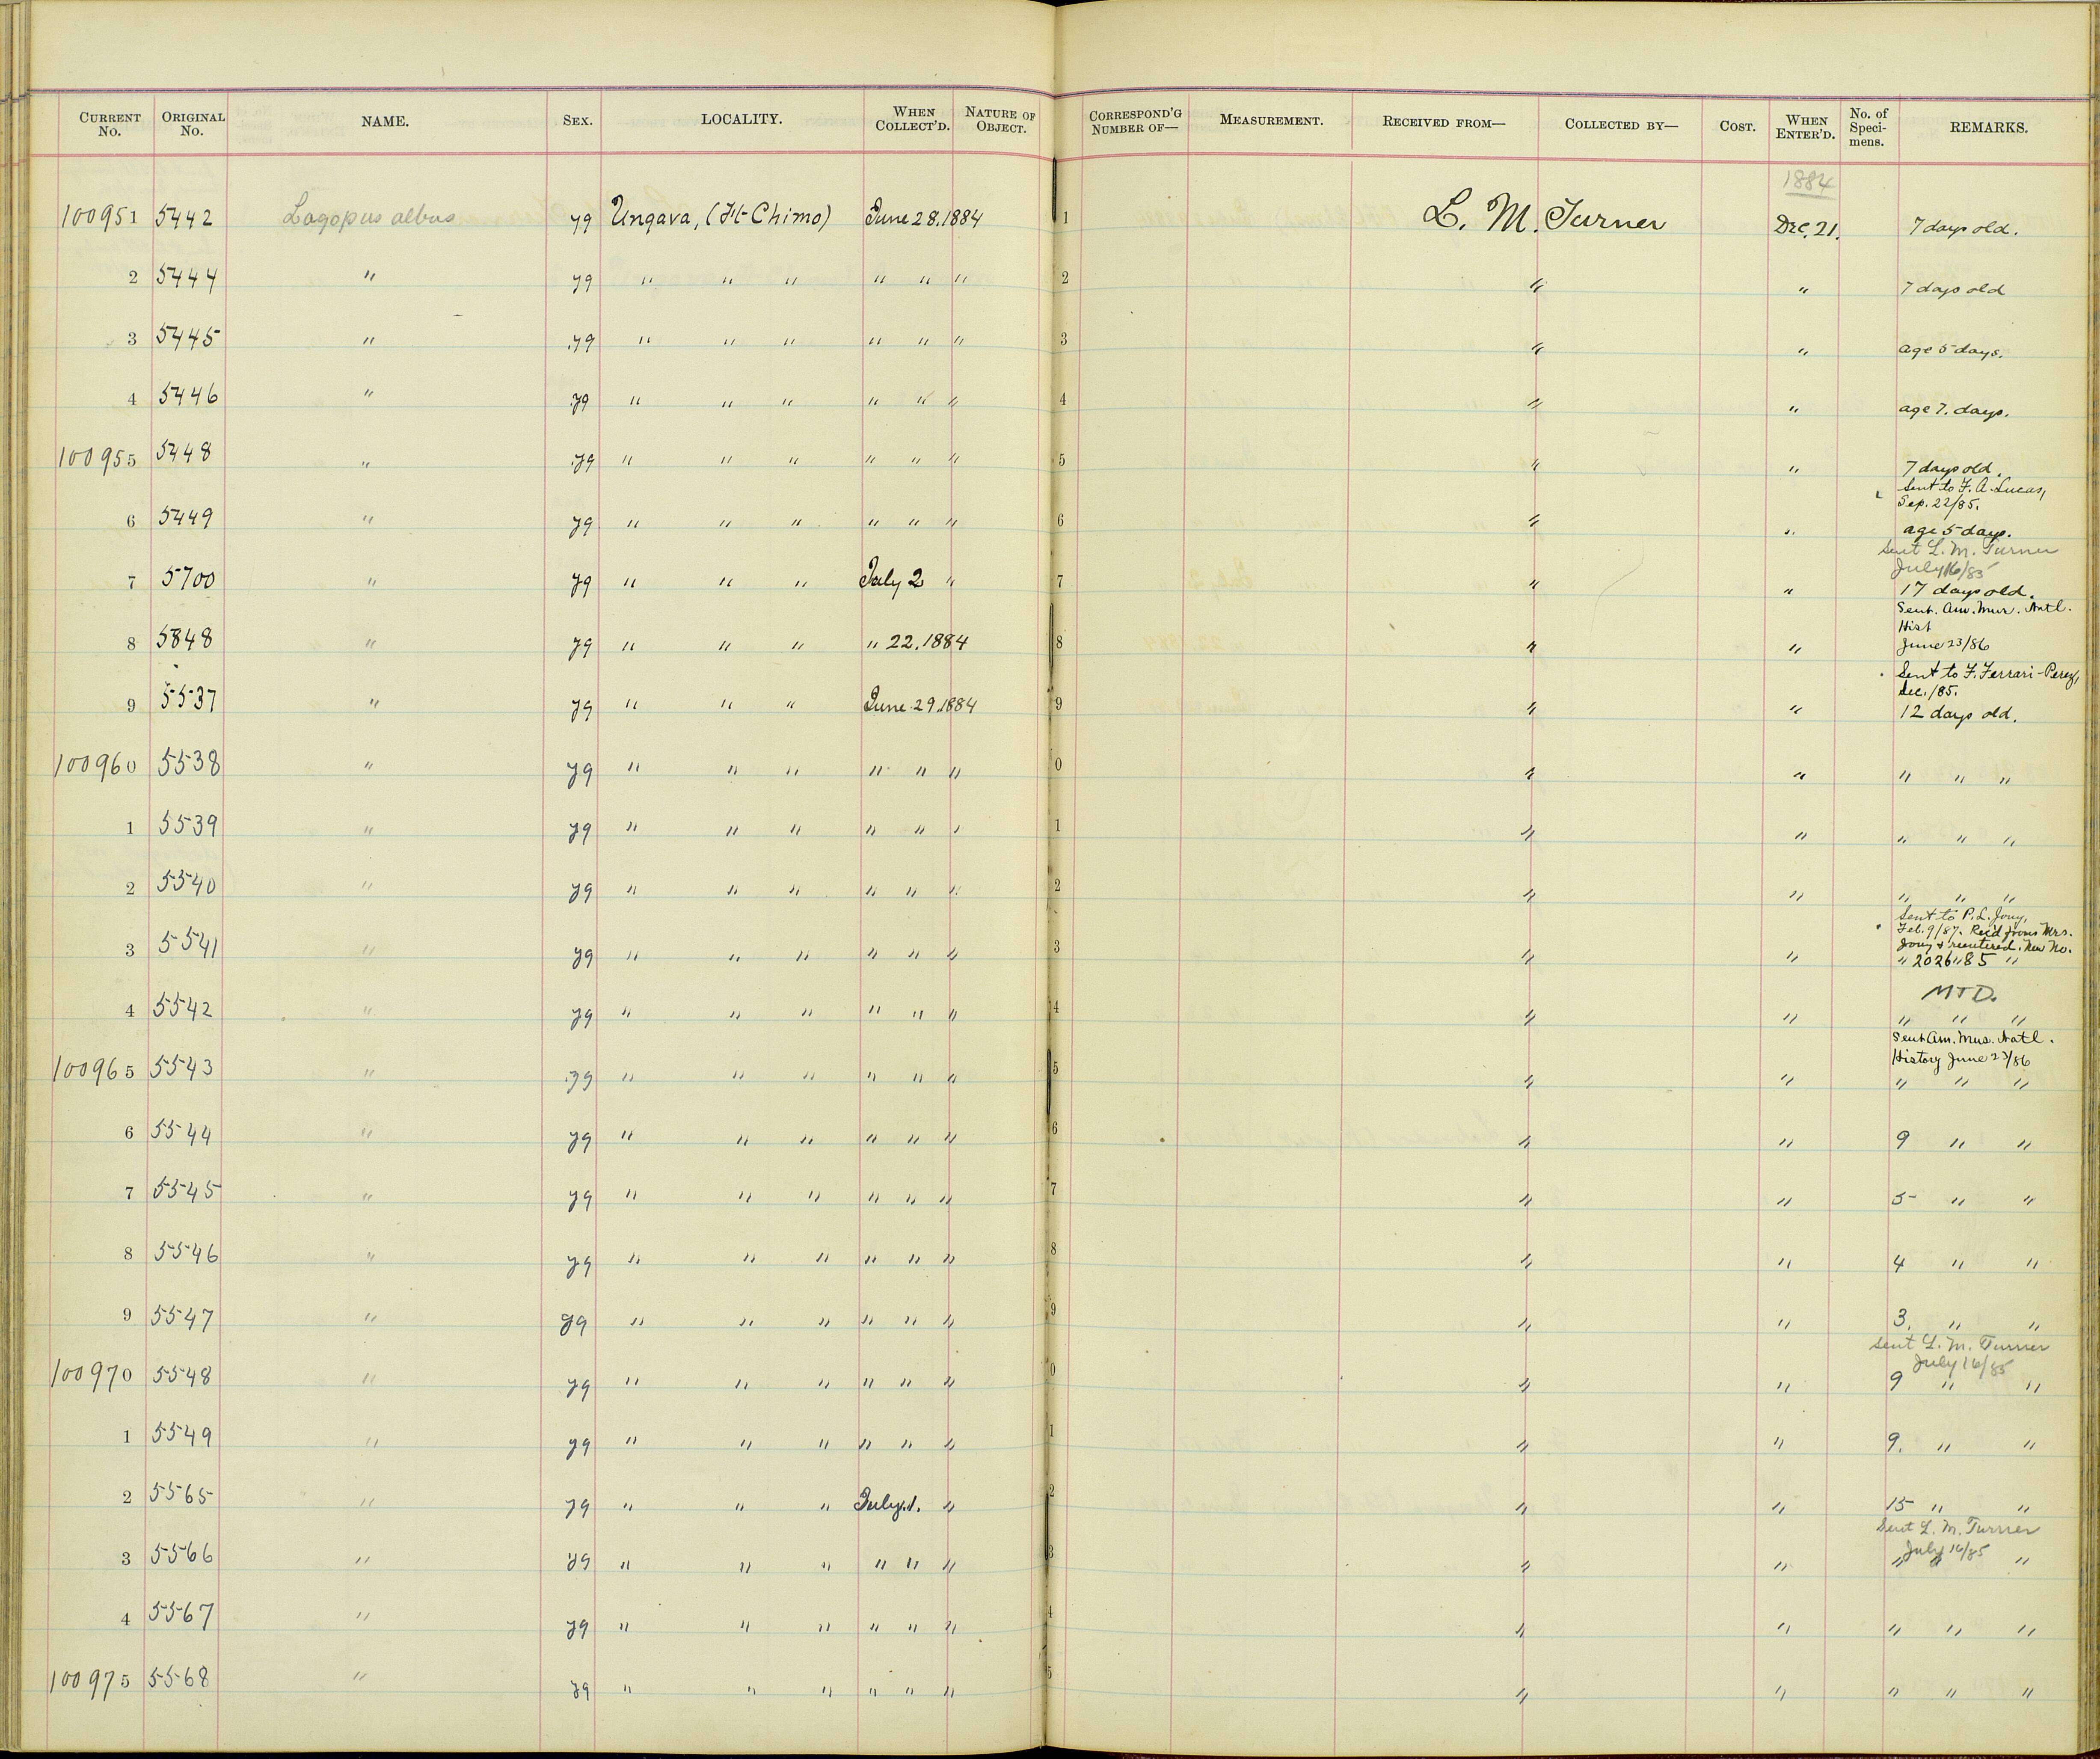 CURRENT No. ORIGINAL No. NAME. SEX. LOCALITY. WHEN COLLECT'D. NATURE OF OBJECT. CORRESPOND'G NUMBER OF— MEASUREMENT. RECEIVED FROM— COLLECTED BY— COST. WHEN ENTER'D. No. of Speci-mens. REMARKS.
1884
100951 5442 Lagopus albus yg Ungava, (Ft Chimo) June 28.1884 1 L. M. Turner Dec. 21. 7 days old.
2 5444 " yg " " " " " " 2 " " 7 days old
3 5445 " yg " " " " " " 3 " " age 5 days.
4 5446 " yg " " " " " " 4 " " age 7. days.
100955 5448 " yg " " " " " " 5 " " 7 days old.
Sent to F. A. Lucas,
Sep. 22/85.
6 5449 " yg " " " " " " 6 " " age 5 days.
Sent L. M. Turner
July 16/85
7 5700 " yg " " " July 2 " 7 " " 17 days old.
Sent. Am. Mus. Natl.
Hist
8 5848 " yg " " " " 22.1884 8 " " June 23/86
Sent to F. Ferrari-Perez,
Dec. /85.
9 5537 " yg " " " June 29.1884 9 " " 12 days old.
100960 5538 " yg " " " " " " 0 " " " " "
1 5539 " yg " " " " " " 1 " " " " "
2 5540 " yg " " " " " " 2 " " " " "
Sent to P. L. Jouy,
Feb. 9/87. Rec'd from Mrs.
Jouy & reentered. New No.
3 5541 " yg " " " " " " 3 " " " 202685 "
MTD.
4 5542 " yg " " " " " " 4 " " " " "
Sent Am. Mus. Natl.
History June 23/86
100965 5543 " yg " " " " " " 5 " " " " "
6 5544 " yg " " " " " " 6 " " 9 " "
7 5545 " yg " " " " " " 7 " " 5 " "
8 5546 " yg " " " " " " 8 " " 4 " "
9 5547 " yg " " " " " " 9 " " 3. " "
Sent L. M. Turner
July 16/85
100970 5548 " yg " " " " " " 0 " " 9 " "
1 5549 " yg " " " " " " 1 " " 9. " "
2 5565 " yg " " " July 1. " 2 " " 15 " "
Sent L. M. Turner
July 16/85
3 5566 " yg " " " " " " 3 " " " " "
4 5567 " yg " " " " " " 4 " " " " "
100975 5568 " yg " " " " " " 5 " " " " "